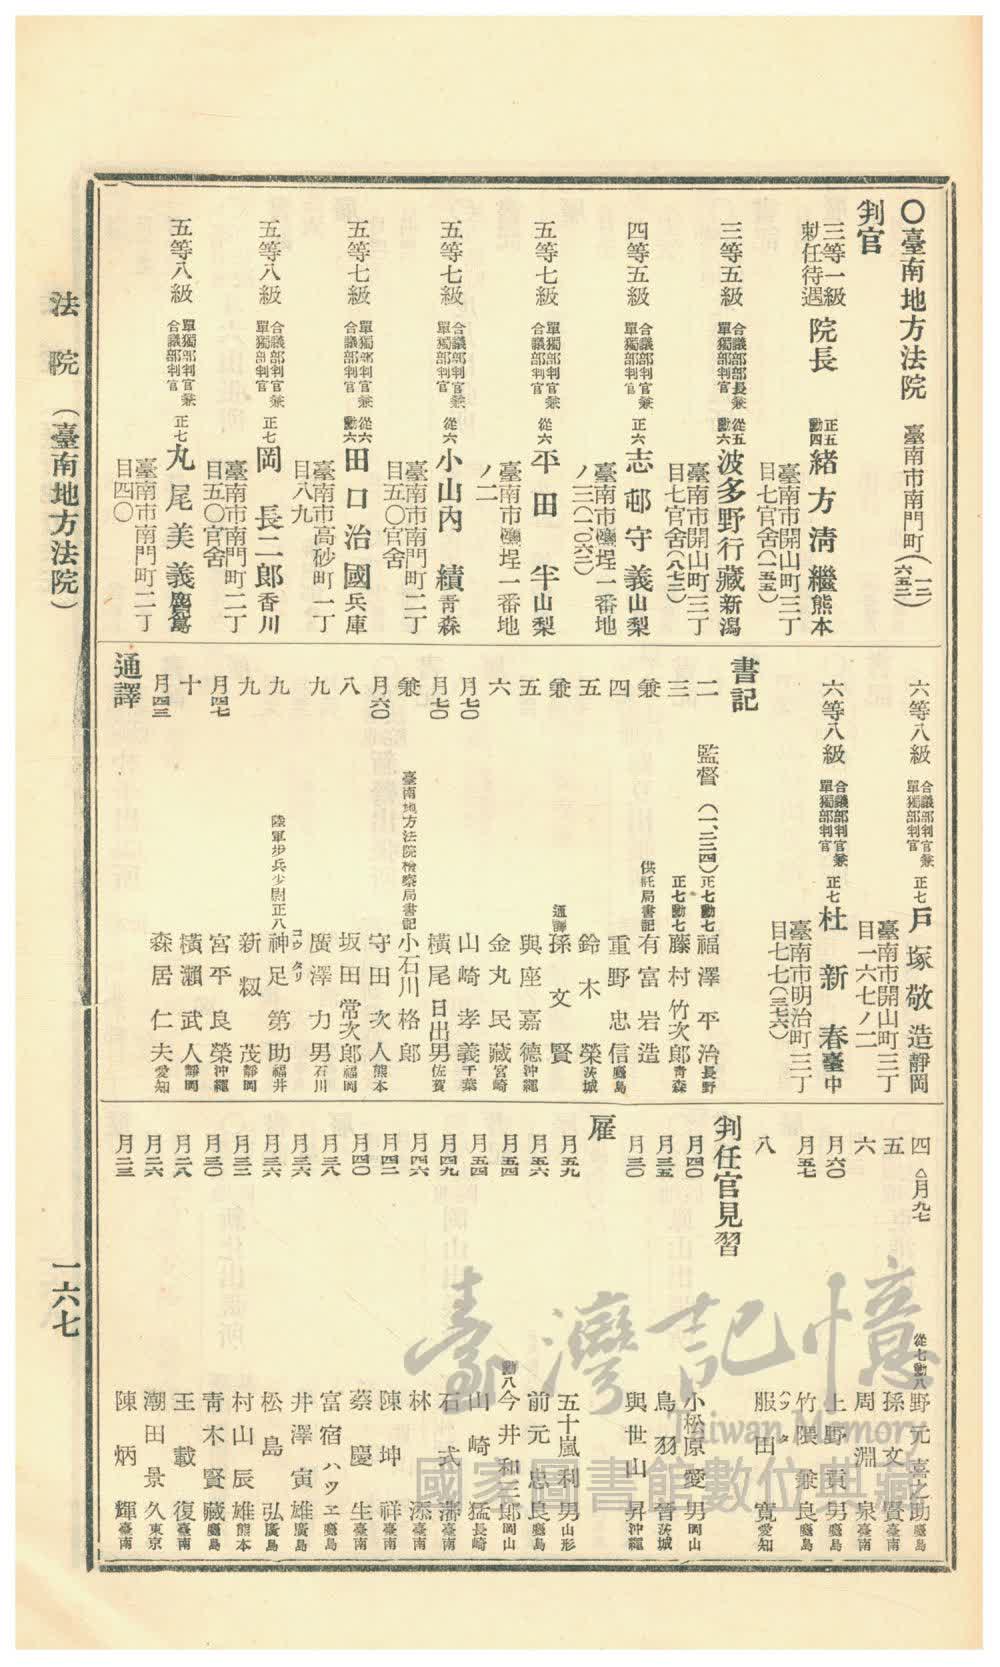 〇臺南地方法院 臺南市南門町(一二六五二)
判官
三等一級勅任待遇 院長 正五勳四 緒方淸繼 熊本
臺南市開山町三丁目七官舍(一五五)
三等五級 合議部部長兼單獨部判官 從五勳六 波多野行藏 新潟
臺南市開山町三丁目七官舍(八七三)
四等五級 合議部判官兼單獨部判官 正六 志邨守義 山梨
臺南市鹽埕一番地ノ三(一〇六三)
五等七級 單獨部判官兼合議部判官 從六 平田半 山梨
臺南市鹽埕一番地ノ二
五等七級 合議部判官兼單獨部判官 從六 小山內績 靑森
臺南市南門町二丁目五〇官舍
五等七級 單獨部判官兼合議部判官 從六勳六 田口治國 兵庫
臺南市高砂町一丁目八九
五等八級 合議部判官兼單獨部判官 正七 岡長二郎 香川
臺南市南門町二丁目五〇官舍
五等八級 單獨部判官兼合議部判官 正七 丸尾美義
臺南市南門町二丁目四〇
六等八級 合議部判官兼單獨部判官 正七 戶塚敬造 靜岡
臺南市開山町三丁目一六七ノ二
六等八級 合議部判官兼單獨部判官 正七 杜新春 臺中
臺南市明治町三丁目七七(三七六)
書記
二 監督(一、三二四) 正七勳七 福澤平治 長野
三 正七勳七 藤村竹次郎 靑森
兼 供託局書記 有富岩造
四 重野忠信 鹿兒島
五 鈴木榮 茨城
兼 通譯 孫文賢
五 與座嘉德 沖繩
六 金丸民藏 宮崎
月七〇 山崎孝義 千葉
月七〇 橫尾日出男 佐賀
兼 臺南地方法院檢察局書記 小石川格郎
月六〇 守田次人 熊本
八 坂田常次郎 福岡
九 廣澤力男 石川
九 陸軍步兵少尉正八 神足第助 福井
コウタリ
九 新籾茂 靜岡
月四七 宮平良榮 沖繩
十 橫瀨武人 靜岡
月四三 森居仁夫 愛知
通譯
四 △月九七 從七勳八 野元喜之助 鹿兒島
五 孫文賢 臺南
六 周淵泉 臺南
月六〇 上野貢男 鹿兒島
月五七 竹隈兼良 鹿兒島
八 服田寬 愛知
ハツタ
判任官見習
月四〇 小松原愛男 岡山
月三五 鳥羽晉 茨城
月三〇 與世山昇 沖繩
雇
月五九 五十嵐利男 山形
月五六 前元忠良 鹿兒島
月五四 勳八 今井和三郎 岡山
月五四 山崎猛 長崎
月四九 石式藩 臺南
月四六 林添 臺南
月四二 陳坤祥 臺南
月四〇 蔡慶生 臺南
月三八 富宿ハツヱ 鹿兒島
月三六 井澤寅雄 廣島
月三六 松島弘 廣島
月三二 村山辰雄 熊本
月三〇 靑木賢藏 鹿兒島
月二八 王載復 臺南
月二六 潮田景久 東京
月二三 陳炳輝 臺南
法院(臺南地方法院)
一六七
臺灣記憶
Taiwan Memory
國家圖書館數位典藏